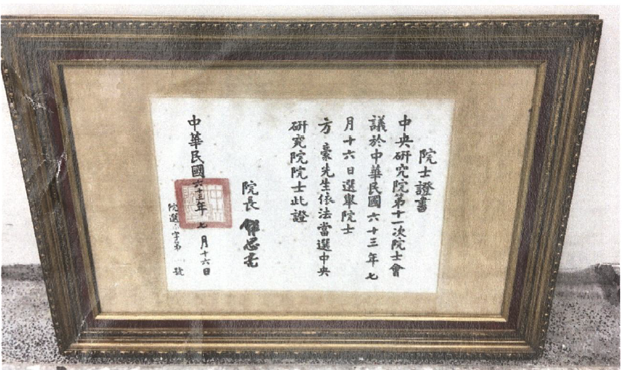 院士證書
中央研究院第十一次院士會
議於中華民國六十三年七
月十六日選舉院士
方 豪先生依法當選中央
研究院院士此證
院長 錢思亮
中華民國六十三年七月十六日
院選 字第 號